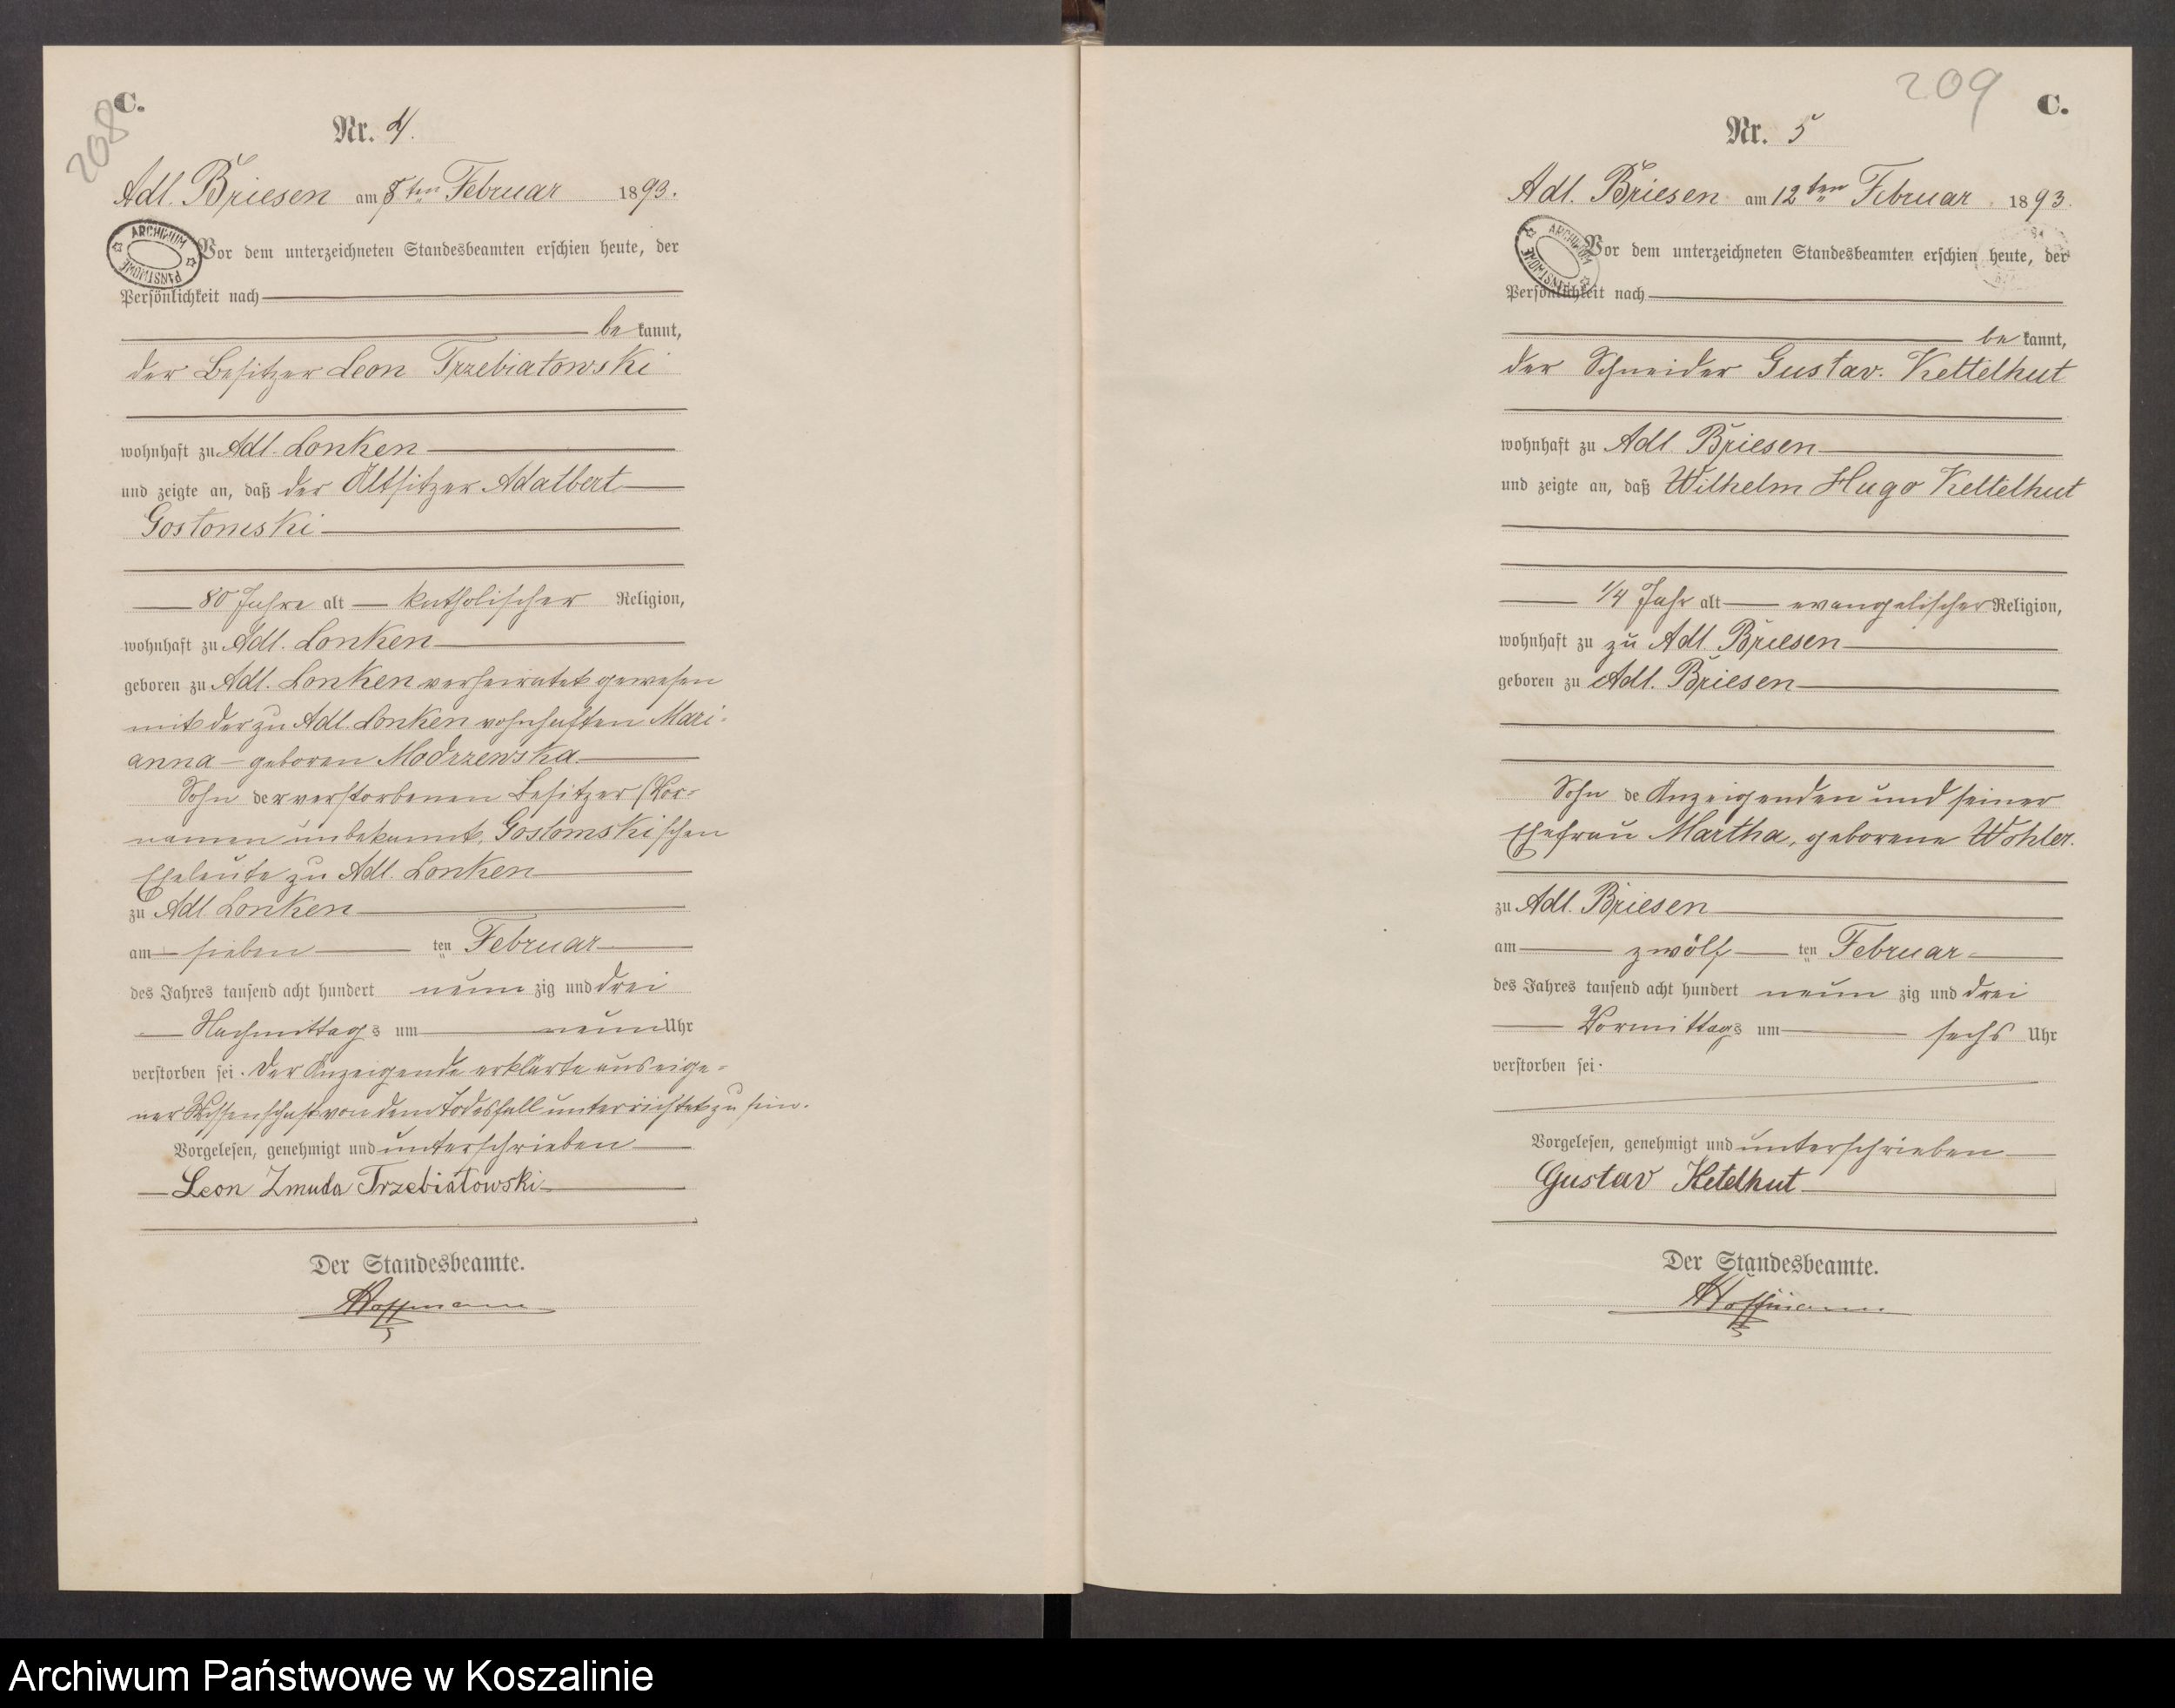 C.
208
Nr. 4.
Adl. Briesen am 8ten Februar 1893.
ARCHIWUM PAŃSTWOWE
Vor dem unterzeichneten Standesbeamten erschien heute, der
Persönlichkeit nach
be kannt,
der Besitzer Leon Trzebiatowski
wohnhaft zu Adl. Lonken
und zeigte an, daß der Altsitzer Adalbert
Gostomski
80 Jahre alt katholischer Religion,
wohnhaft zu Adl. Lonken
geboren zu Adl. Lonken verheiratet gewesen
mit der zu Adl. Lonken wohnhaften Mari-
anna geboren Modrzewska.
Sohn der verstorbenen Besitzer (Vor-
namen unbekannt, Gostomskischen
Eheleute zu Adl. Lonken
zu Adl Lonken
am sieben ten Februar
des Jahres tausend acht hundert neun zig und drei
Nachmittags um neun Uhr
verstorben sei. Der Anzeigende erklärte aus eige-
ner Wissenschaft von dem Todesfall unterrichtet zu sein.
Vorgelesen, genehmigt und unterschrieben
Leon Zmuda Trzebiatowski
Der Standesbeamte.
Hoffmann
209
C.
Nr. 5
Adl. Briesen am 12ten Februar 1893.
ARCHIWUM PAŃSTWOWE
Vor dem unterzeichneten Standesbeamten erschien heute, der
Persönlichkeit nach
be kannt,
der Schneider Gustav Kettelhut
wohnhaft zu Adl. Briesen
und zeigte an, daß Wilhelm Hugo Kettelhut
1/4 Jahr alt evangelischer Religion,
wohnhaft zu zu Adl. Briesen
geboren zu Adl. Briesen
Sohn de Anzeigenden und seiner
Ehefrau Martha, geborene Wohler.
zu Adl. Briesen
am zwölf ten Februar
des Jahres tausend acht hundert neun zig und drei
Vormittags um sechs Uhr
verstorben sei.
Vorgelesen, genehmigt und unterschrieben
Gustav Ketelhut
Der Standesbeamte.
Hoffmann
Archiwum Państwowe w Koszalinie